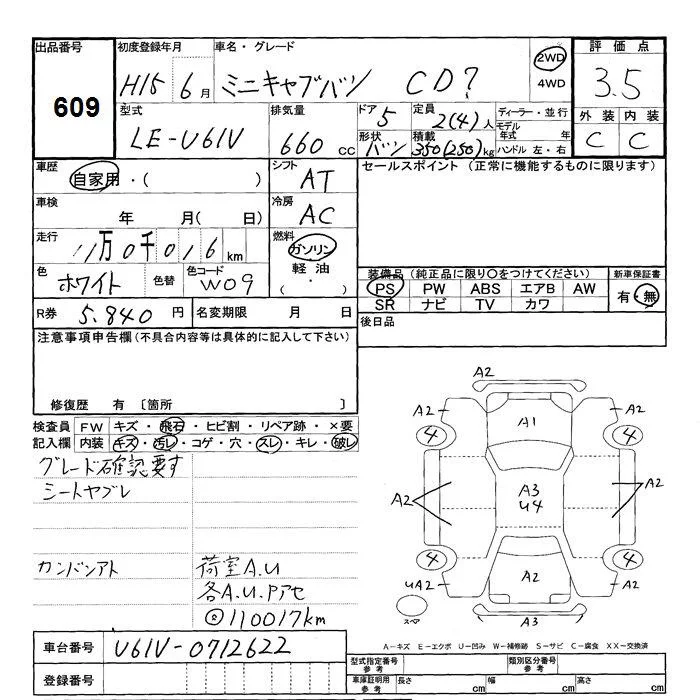 出品番号
609
初度登録年月
H15 6月
車名・グレード
ミニキャブバン CD?
2WD
4WD
評価点
3.5
型式
LE-U61V
排気量
660 cc
ドア
5
形状
バン
定員
2(4)人
積載
350(250)kg
ディーラー・並行
モデル年式 年
ハンドル 左・右
外装 内装
C C
車歴
自家用・( )
シフト
AT
セールスポイント (正常に機能するものに限ります)
車検
年 月( 日)
冷房
AC
走行
11万0千016km
燃料
ガソリン
軽油
( ・ )
色
ホワイト
色替
色コード
W09
装備品 (純正品に限り○をつけてください)
新車保証書
PS PW ABS エアB AW
有・無
SR ナビ TV カワ
R券 5.840円
名変期限 月 日
後日品
注意事項申告欄(不具合内容等は具体的に記入して下さい)
修復歴 有 〔箇所
検査員
記入欄
FW キズ・飛石・ヒビ割・リペア跡・×要
内装 キズ・汚レ・コゲ・穴・スレ・キレ・破レ
グレード確認要す
シートヤブレ
カンバンアト
荷室A.U
各A.U.Pアセ
◎110017km
A2
A2 A2
4 A1 4
A2 A3 A2
U4
4 4
UA2 A2 A2
スペア
A3
A-キズ E-エクボ U-凹み W-補修跡 S-サビ C-腐食 XX-交換済
車台番号
U61V-0712622
登録番号
型式指定番号
参考
類別区分番号
参考
車庫証明用
参考
長さ cm 幅 cm 高さ cm